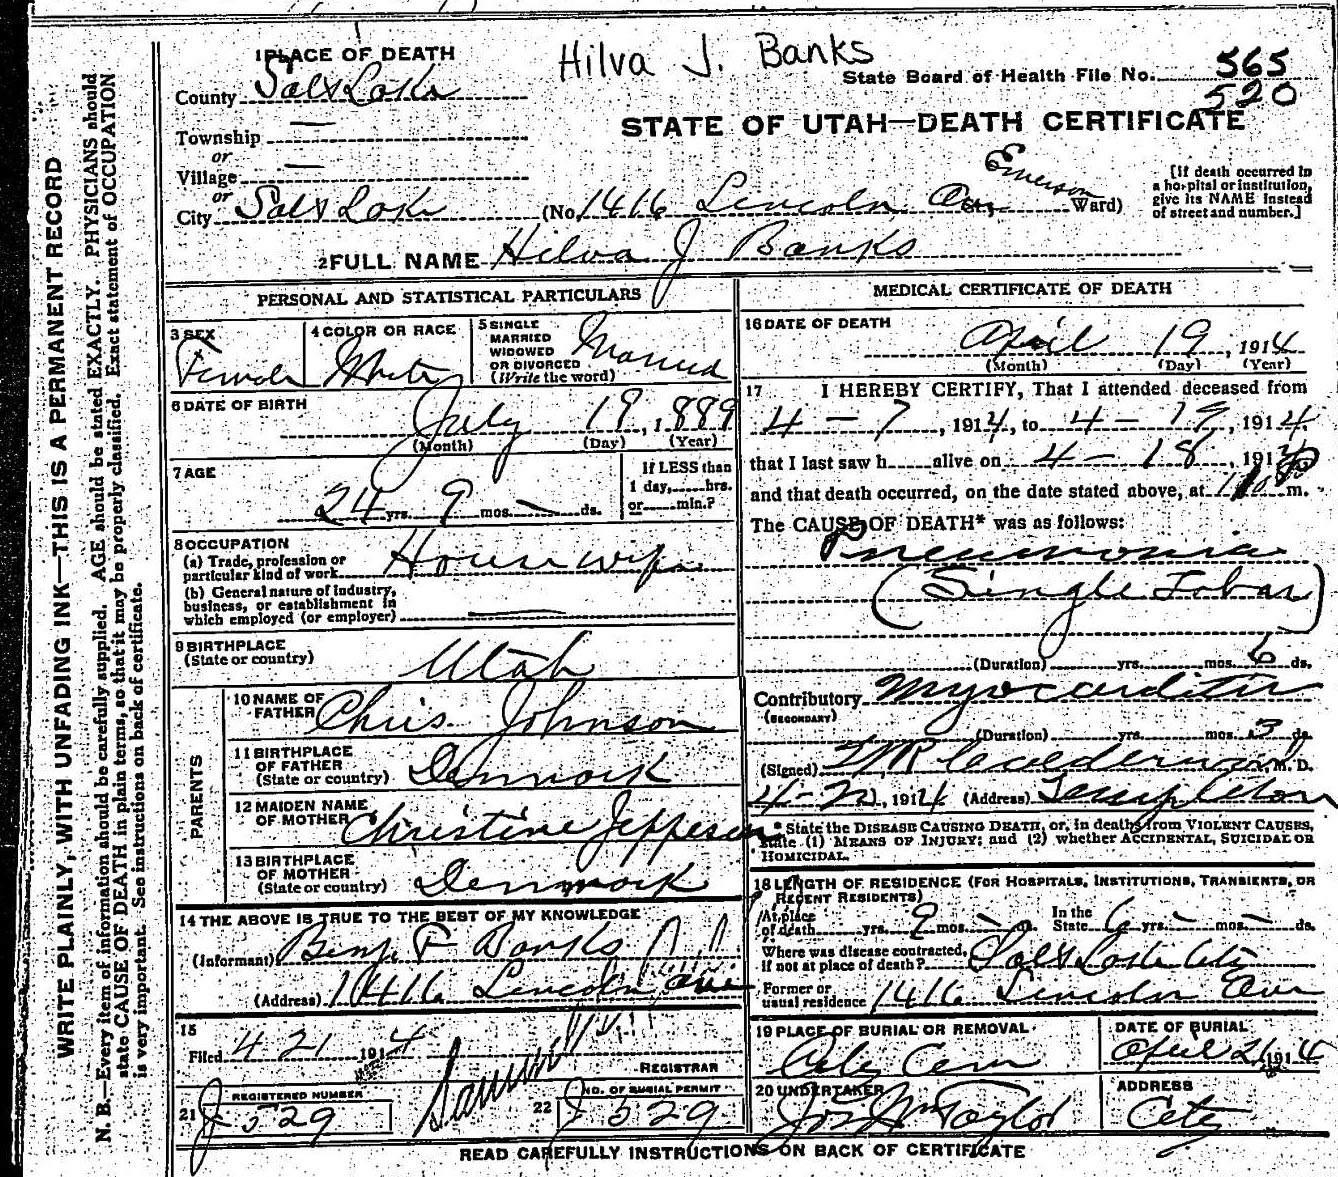 Hilva J. Banks
1 PLACE OF DEATH
County Salt Lake
State Board of Health File No. 565
520
Township —
or
Village —
or
City Salt Lake
STATE OF UTAH—DEATH CERTIFICATE
(No. 1416 Lincoln Ave, Emerson Ward)
[If death occurred in
a hospital or institution,
give its NAME instead
of street and number.]
2 FULL NAME Hilva J Banks
PERSONAL AND STATISTICAL PARTICULARS
3 SEX
Female
4 COLOR OR RACE
White
5 SINGLE
MARRIED
WIDOWED
OR DIVORCED
(Write the word)
Married
6 DATE OF BIRTH
July 19, 1889
(Month) (Day) (Year)
7 AGE
24 yrs. 9 mos. — ds.
If LESS than
1 day, hrs.
or min.?
8 OCCUPATION
(a) Trade, profession or
particular kind of work Housewife
(b) General nature of industry,
business, or establishment in
which employed (or employer)
9 BIRTHPLACE
(State or country)
Utah
PARENTS
10 NAME OF
FATHER Chris. Johnson
11 BIRTHPLACE
OF FATHER
(State or country) Denmark
12 MAIDEN NAME
OF MOTHER Christine Jeppesen
13 BIRTHPLACE
OF MOTHER
(State or country) Denmark
14 THE ABOVE IS TRUE TO THE BEST OF MY KNOWLEDGE
(Informant) Benj. F Banks
(Address) 1416 Lincoln Ave
15
Filed 4 21 1914
REGISTRAR
21 REGISTERED NUMBER
J 529
22 NO. OF BURIAL PERMIT
J 529
MEDICAL CERTIFICATE OF DEATH
16 DATE OF DEATH
April 19, 1914
(Month) (Day) (Year)
17 I HEREBY CERTIFY, That I attended deceased from
4 — 7, 1914, to 4 — 19, 1914.
that I last saw h alive on 4 — 18, 1914
and that death occurred, on the date stated above, at m.
The CAUSE OF DEATH* was as follows:
Pneumonia
(Single Lobar)
(Duration) yrs. mos. 6 ds.
Contributory Myocarditis
(SECONDARY)
(Duration) yrs. mos. 3 ds.
(Signed) Calderwood, M. D.
4-20, 1914 (Address) Templeton
* State the DISEASE CAUSING DEATH, or, in deaths from VIOLENT CAUSES,
state (1) MEANS OF INJURY; and (2) whether ACCIDENTAL, SUICIDAL OR
HOMICIDAL.
18 LENGTH OF RESIDENCE (FOR HOSPITALS, INSTITUTIONS, TRANSIENTS, OR
RECENT RESIDENTS)
At place
of death yrs. 9 mos. — ds.
In the
State 6 yrs. — mos. — ds.
Where was disease contracted,
if not at place of death? Salt Lake City
Former or
usual residence 1416 Lincoln Ave
19 PLACE OF BURIAL OR REMOVAL
City Cem
DATE OF BURIAL
April 21 1914
20 UNDERTAKER
Jos Wm Taylor
ADDRESS
City
READ CAREFULLY INSTRUCTIONS ON BACK OF CERTIFICATE
WRITE PLAINLY, WITH UNFADING INK—THIS IS A PERMANENT RECORD
N. B.—Every item of information should be carefully supplied. AGE should be stated EXACTLY. PHYSICIANS should
state CAUSE OF DEATH in plain terms, so that it may be properly classified. Exact statement of OCCUPATION
is very important. See instructions on back of certificate.